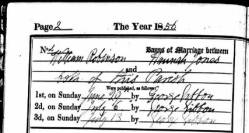 Page 2 The Year 1856
No. Banns of Marriage between
William Robinson Hannah Jones
and
both of this Parish
Were published, as follows:
1st, on Sunday June 29 by George Sibbon
2d, on Sunday July 6 by George Sibbon
3d, on Sunday July 13 by